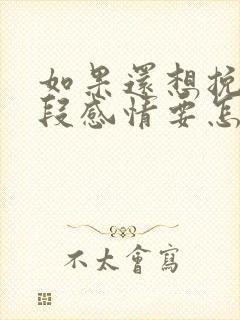 如果還想挽
段感情要怎
不太會寫